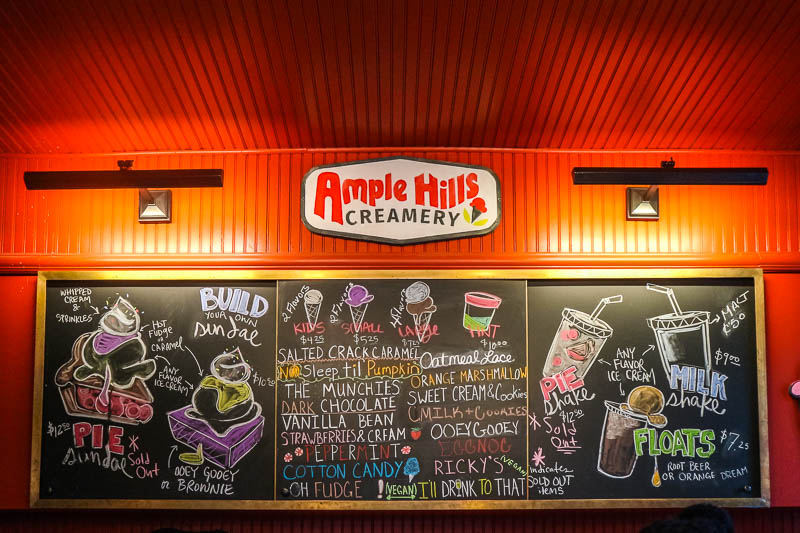 Ample Hills
CREAMERY
WHIPPED
CREAM &
SPRINKLES
HOT
FUDGE
or
CARAMEL
ANY
FLAVOR
ICE CREAM
$12.50
PIE
Sundae
* Sold
Out
BUILD
YOUR OWN
Sundae
OOEY GOOEY
OR BROWNIE
2 Flavors
KIDS
$4.25
2 Flavors
SMALL
$5.25
LARGE
PINT
SALTED CRACK CARAMEL
No Sleep til Pumpkin
THE MUNCHIES
DARK CHOCOLATE
VANILLA BEAN
STRAWBERRIES & CREAM
PEPPERMINT
COTTON CANDY
OH FUDGE ! (VEGAN)
Oatmeal Lace
ORANGE MARSHMALLOW
SWEET CREAM & Cookies
MILK + COOKIES
OOEY GOOEY
EGGNOG
RICKY'S (VEGAN)
I'll DRINK TO THAT
PIE
shake
$12.50
* Sold
Out
* indicates
SOLD OUT
items
ANY
FLAVOR
ICE CREAM
MALT
$9.00
MILK
shake
FLOATS
$7.25
ROOT BEER
OR ORANGE DREAM